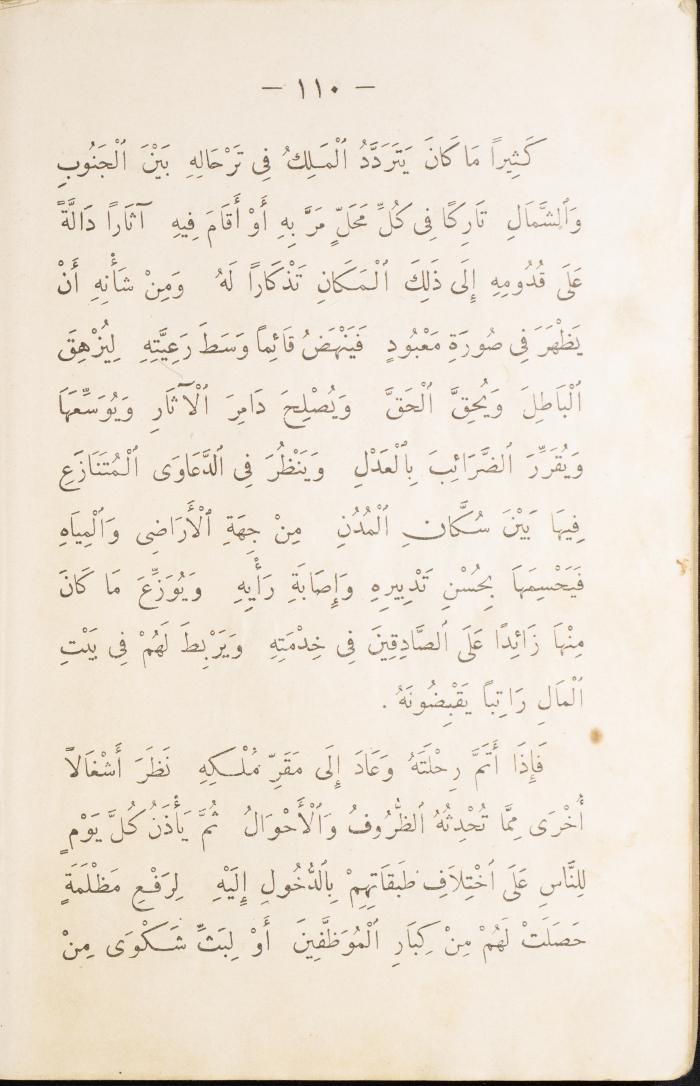 — ١١٠ —
كَثِيراً مَا كَانَ يَتَرَدَّدُ ٱلْمَلِكُ فِى تَرْحَالِهِ بَيْنَ ٱلْجَنُوبِ
وَٱلشَّمَالِ تَارِكًا فِى كُلِّ مَحَلٍّ مَرَّ بِهِ أَوْ أَقَامَ فِيهِ آثَاراً دَالَّةً
عَلَى قُدُومِهِ إِلَى ذَلِكَ ٱلْمَكَانِ تَذْكَاراً لَهُ وَمِنْ شَأْنِهِ أَنْ
يَظْهَرَ فِى صُورَةِ مَعْبُودٍ فَيَنْهَضُ قَائِماً وَسَطَ رَعِيَّتِهِ لِيُزْهِقَ
ٱلْبَاطِلَ وَيُحِقَّ ٱلْحَقَّ وَيُصْلِحَ دَامِرَ ٱلْآثَارِ وَيُوَسِّعَهَا
وَيُقَرِّرَ ٱلضَّرَائِبَ بِٱلْعَدْلِ وَيَنْظُرَ فِى ٱلدَّعَاوَى ٱلْمُتَنَازَعِ
فِيهَا بَيْنَ سُكَّانِ ٱلْمُدُنِ مِنْ جِهَةِ ٱلْأَرَاضِى وَٱلْمِيَاهِ
فَيَحْسِمَهَا بِحُسْنِ تَدْبِيرِهِ وَإِصَابَةِ رَأْيِهِ وَيُوَزِّعَ مَا كَانَ
مِنْهَا زَائِدًا عَلَى ٱلصَّادِقِينَ فِى خِدْمَتِهِ وَيَرْبِطَ لَهُمْ فِى بَيْتِ
ٱلْمَالِ رَاتِباً يَقْبِضُونَهُ .
فَإِذَا أَتَمَّ رِحْلَتَهُ وَعَادَ إِلَى مَقَرِّ مُلْكِهِ نَظَرَ أَشْغَالاً
أُخْرَى مِمَّا تُحْدِثُهُ ٱلظُّرُوفُ وَٱلْأَحْوَالُ ثُمَّ يَأْذَنُ كُلَّ يَوْمٍ
لِلنَّاسِ عَلَى ٱخْتِلَافِ طَبَقَاتِهِمْ بِٱلدُّخُولِ إِلَيْهِ لِرَفْعِ مَظْلَمَةٍ
حَصَلَتْ لَهُمْ مِنْ كِبَارِ ٱلْمُوَظَّفِينَ أَوْ لِبَثِّ شَكْوَى مِنْ